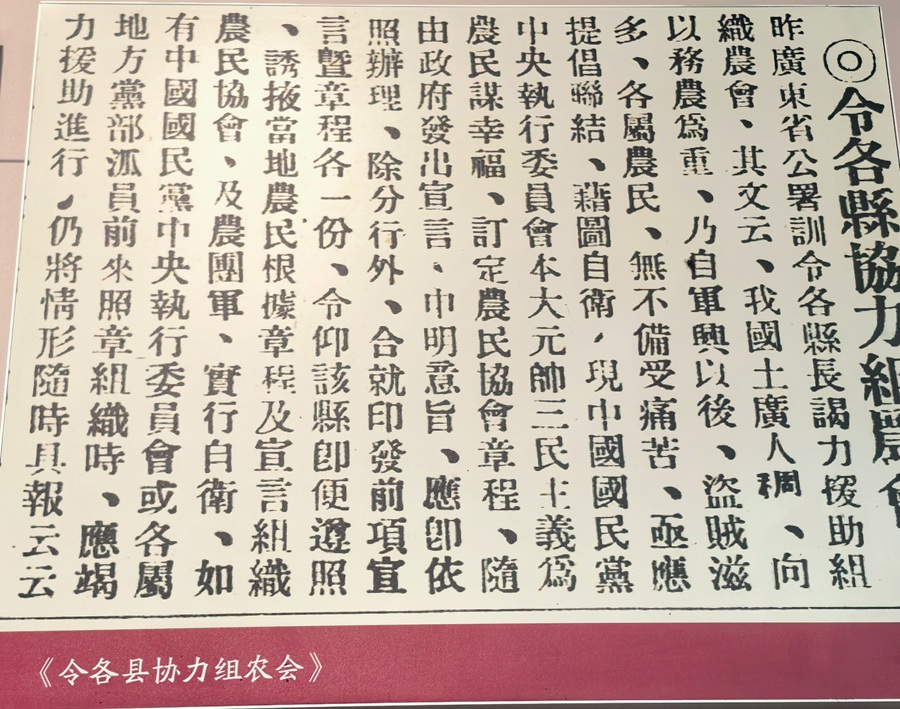 ◎令各縣協力組農會
昨廣東省公署訓令各縣長謁力援助組
織農會、其文云、我國土廣人稠、向
以務農爲重、乃自軍興以後、盜賊滋
多、各屬農民、無不備受痛苦、亟應
提倡聯結、藉圖自衛，現中國國民黨
中央執行委員會本大元帥三民主義爲
農民謀幸福、訂定農民協會章程、隨
由政府發出宣言、申明意旨、應卽依
照辦理、除分行外、合就印發前項宣
言暨章程各一份、令仰該縣卽便遵照
、誘掖當地農民根據章程及宣言組織
農民協會、及農團軍、實行自衛、如
有中國國民黨中央執行委員會或各屬
地方黨部派員前來照章組織時、應竭
力援助進行，仍將情形隨時具報云云
《令各县协力组农会》